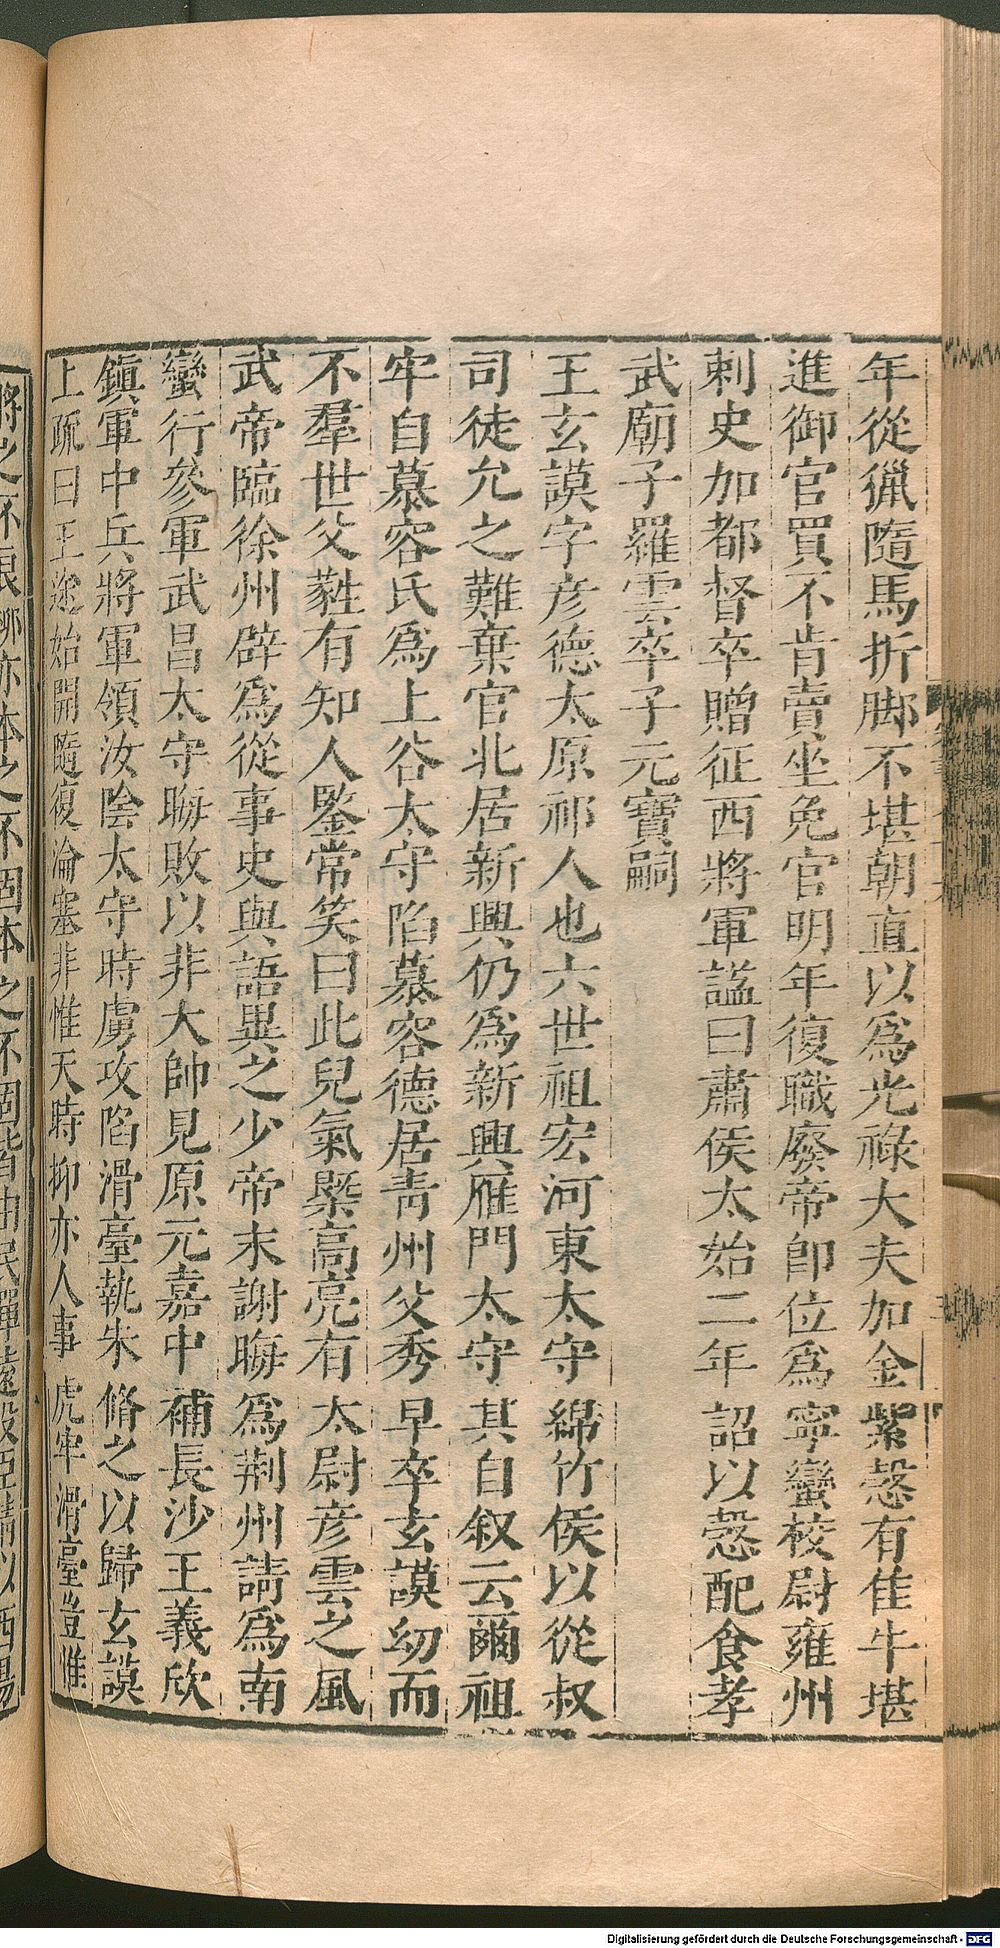 年從獵隨馬折脚不堪朝直以爲光祿大夫加金紫慤有佳牛堪
進御官買不肯賣坐免官明年復職廢帝即位爲寧蠻校尉雍州
刺史加都督卒贈征西將軍諡曰肅侯太始二年詔以慤配食孝
武廟子羅雲卒子元寶嗣
王玄謨字彦德太原祁人也六世祖宏河東太守綿竹侯以從叔
司徒允之難棄官北居新興仍爲新興雁門太守其自叙云爾祖
牢自慕容氏爲上谷太守陷慕容德居青州父秀早卒玄謨幼而
不羣世父蕤有知人鑒常笑曰此兒氣槩高亮有太尉彦雲之風
武帝臨徐州辟爲從事史與語異之少帝末謝晦爲荆州請爲南
蠻行參軍武昌太守晦敗以非大帥見原元嘉中補長沙王義欣
鎮軍中兵將軍領汝陰太守時虜攻陷滑臺執朱脩之以歸玄謨
上疏曰王途始開隨復淪塞非惟天時抑亦人事虎牢滑臺豈惟
將之不良抑亦本之不固本之不固皆由民憚遠役臣請以西陽
Digitalisierung gefördert durch die Deutsche Forschungsgemeinschaft - DFG